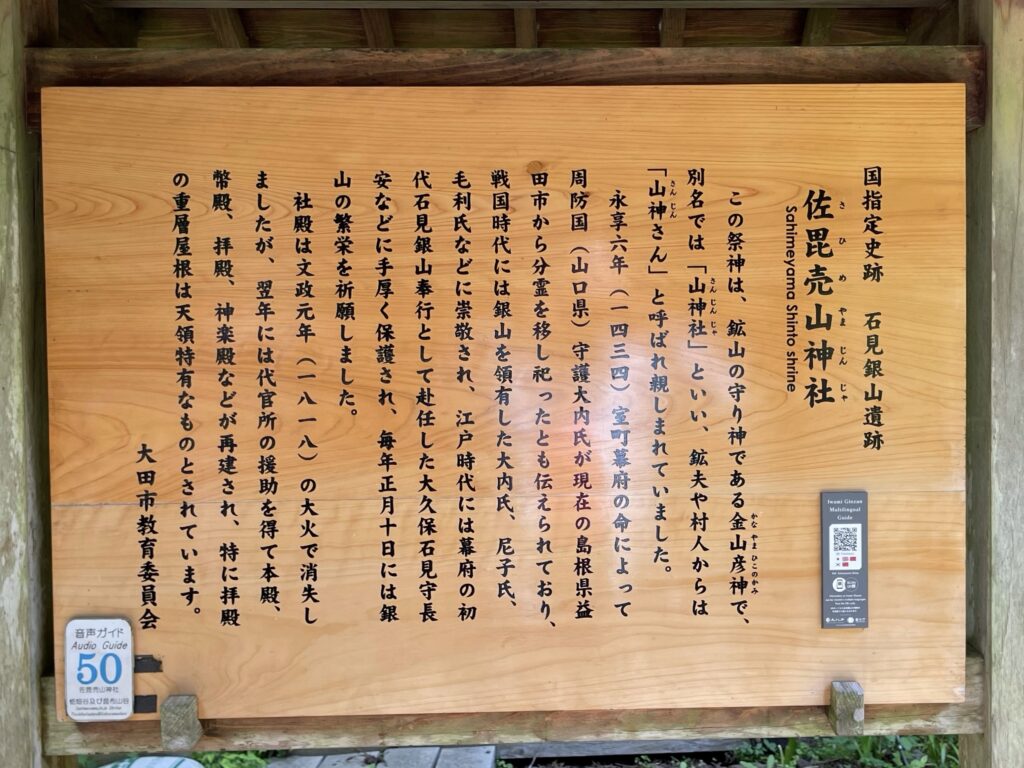 国指定史跡　石見銀山遺跡
佐毘売山神社
さひめやまじんじゃ
Sahimeyama Shinto shrine
この祭神は、鉱山の守り神である金山彦神で、
かなやまひこのかみ
別名では「山神社」といい、鉱夫や村人からは
さんじんじゃ
「山神さん」と呼ばれ親しまれていました。
さんじん
永享六年（一四三四）室町幕府の命によって
周防国（山口県）守護大内氏が現在の島根県益
田市から分霊を移し祀ったとも伝えられており、
戦国時代には銀山を領有した大内氏、尼子氏、
毛利氏などに崇敬され、江戸時代には幕府の初
代石見銀山奉行として赴任した大久保石見守長
安などに手厚く保護され、毎年正月十日には銀
山の繁栄を祈願しました。
社殿は文政元年（一八一八）の大火で消失し
ましたが、翌年には代官所の援助を得て本殿、
幣殿、拝殿、神楽殿などが再建され、特に拝殿
の重層屋根は天領特有なものとされています。
大田市教育委員会
Iwami Ginzan
Multilingual
Guide
音声ガイド
Audio Guide
50
佐毘売山神社
栃畑谷及び昆布山谷